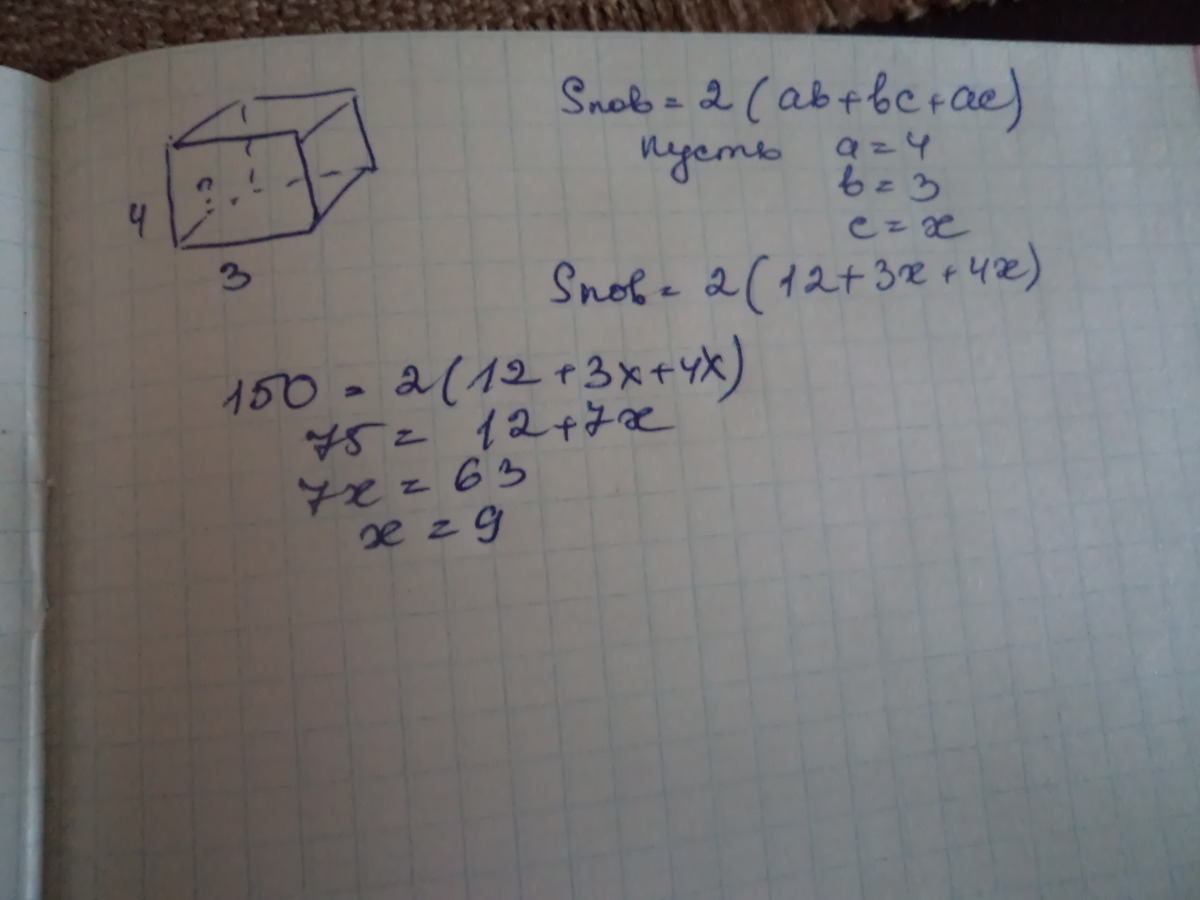 4
3
Sпов = 2 (ab+bc+ac)
пусть a = 4
b = 3
c = x
Sпов = 2 (12+3x+4x)
150 = 2 (12+3x+4x)
75 = 12+7x
7x = 63
x = 9